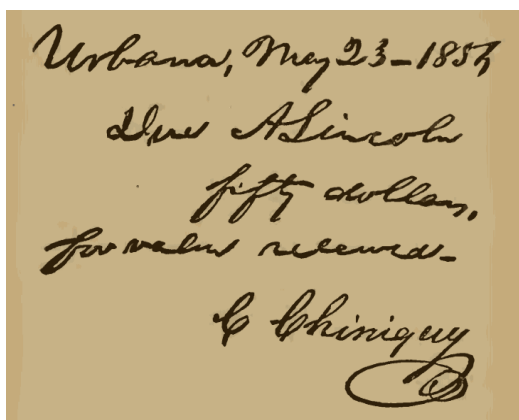 Urbana, May 23–1856
Due A Lincoln
fifty dollars,
for value received–
C Chiniquy